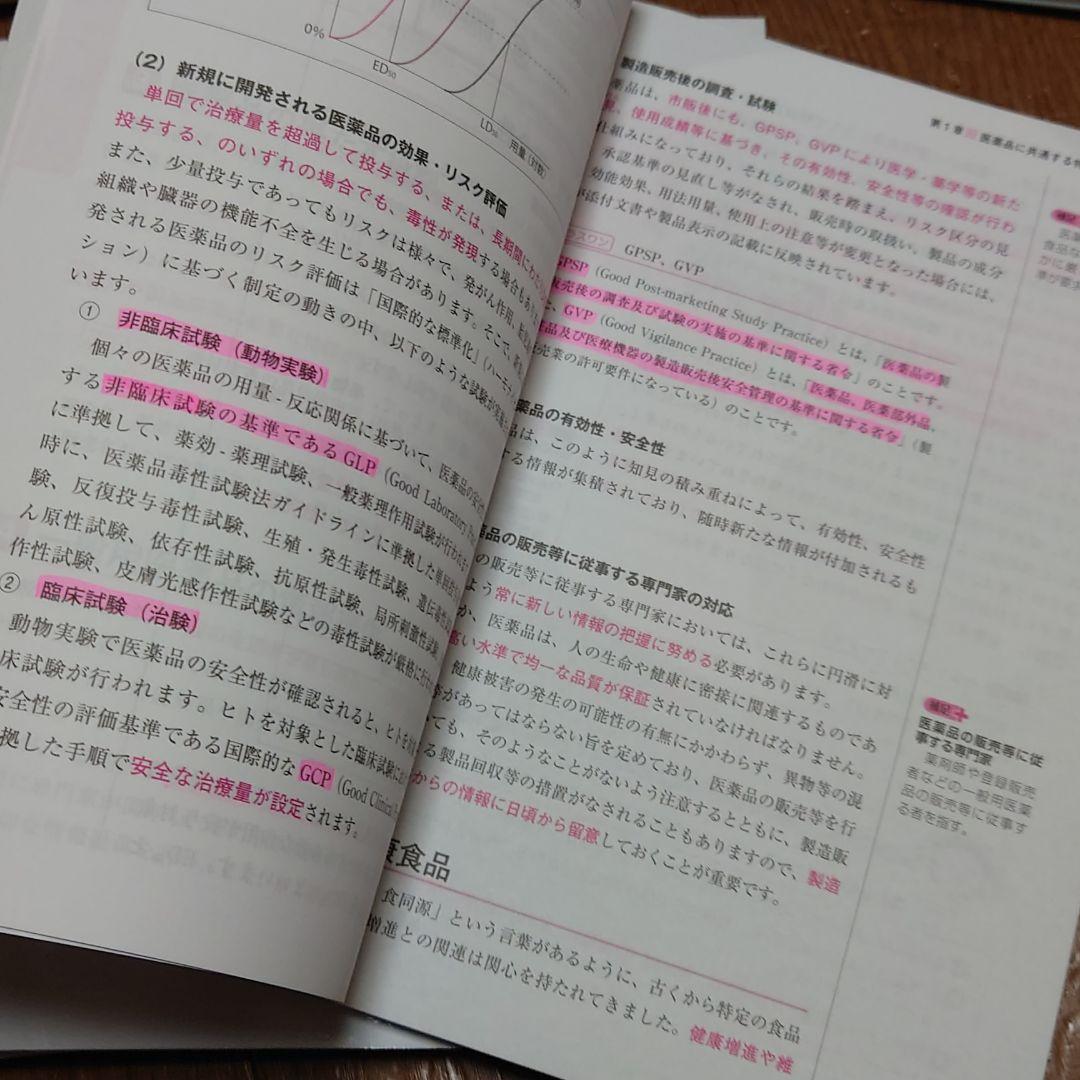 0%
ED50
LD50
用量(対数)
(2) 新規に開発される医薬品の効果・リスク評価
単回で治療量を超過して投与する、または、長期間にわた
投与する、のいずれの場合でも、毒性が発現する場合もあ
また、少量投与であってもリスクは様々で、発がん作用、
組織や臓器の機能不全を生じる場合があります。そこで、
発される医薬品のリスク評価は「国際的な標準化」(ハーモナ
ション)に基づく制定の動きの中、以下のような試験が
います。
① 非臨床試験(動物実験)
個々の医薬品の用量-反応関係に基づいて、医薬品の
する非臨床試験の基準であるGLP (Good Laboratory
に準拠して、薬効-薬理試験、一般薬理作用試験が行われ
時に、医薬品毒性試験法ガイドラインに準拠した単回
験、反復投与毒性試験、生殖・発生毒性試験、遺伝
ん原性試験、依存性試験、抗原性試験、局所刺激性試験、
作性試験、皮膚光感作性試験などの毒性試験が厳格に行わ
② 臨床試験(治験)
動物実験で医薬品の安全性が確認されると、ヒトを
床試験が行われます。ヒトを対象とした臨床試験に
安全性の評価基準である国際的なGCP (Good Clinical
拠した手順で安全な治療量が設定されます。
第1章 医薬品に共通する
製造販売後の調査・試験
薬品は、市販後にも、GPSP、GVPにより医学・薬学等の新た
、使用成績等に基づき、その有効性、安全性等の確認が行わ
仕組みになっており、それらの結果を踏まえ、リスク区分の見
承認基準の見直し等がなされ、販売時の取扱い、製品の成分
効能効果、用法用量、使用上の注意等が変更となった場合には、
添付文書や製品表示の記載に反映されています。
スワン GPSP、GVP
GPSP (Good Post-marketing Study Practice) とは、「医薬品の製
販売後の調査及び試験の実施の基準に関する省令」のことです。
、GVP (Good Vigilance Practice) とは、「医薬品、医薬部外品、
品及び医療機器の製造販売後安全管理の基準に関する省令」(製
売業の許可要件になっている)のことです。
薬品の有効性・安全性
品は、このように知見の積み重ねによって、有効性、安全性
する情報が集積されており、随時新たな情報が付加されるも
薬品の販売等に従事する専門家の対応
の販売等に従事する専門家においては、これらに円滑に対
よう常に新しい情報の把握に努める必要があります。
か、医薬品は、人の生命や健康に密接に関連するものであ
高い水準で均一な品質が保証されていなければなりません。
健康被害の発生の可能性の有無にかかわらず、異物等の混
等があってはならない旨を定めており、医薬品の販売等を行
いても、そのようなことがないよう注意するとともに、製造販
る製品回収等の措置がなされることもありますので、製造
からの情報に日頃から留意しておくことが重要です。
食品
食同源」という言葉があるように、古くから特定の食品
増進との関連は関心を持たれてきました。健康増進や維
補足
医薬品の販売等に従
事する専門家
薬剤師や登録販売
者などの一般用医薬
品の販売等に従事す
る者を指す。